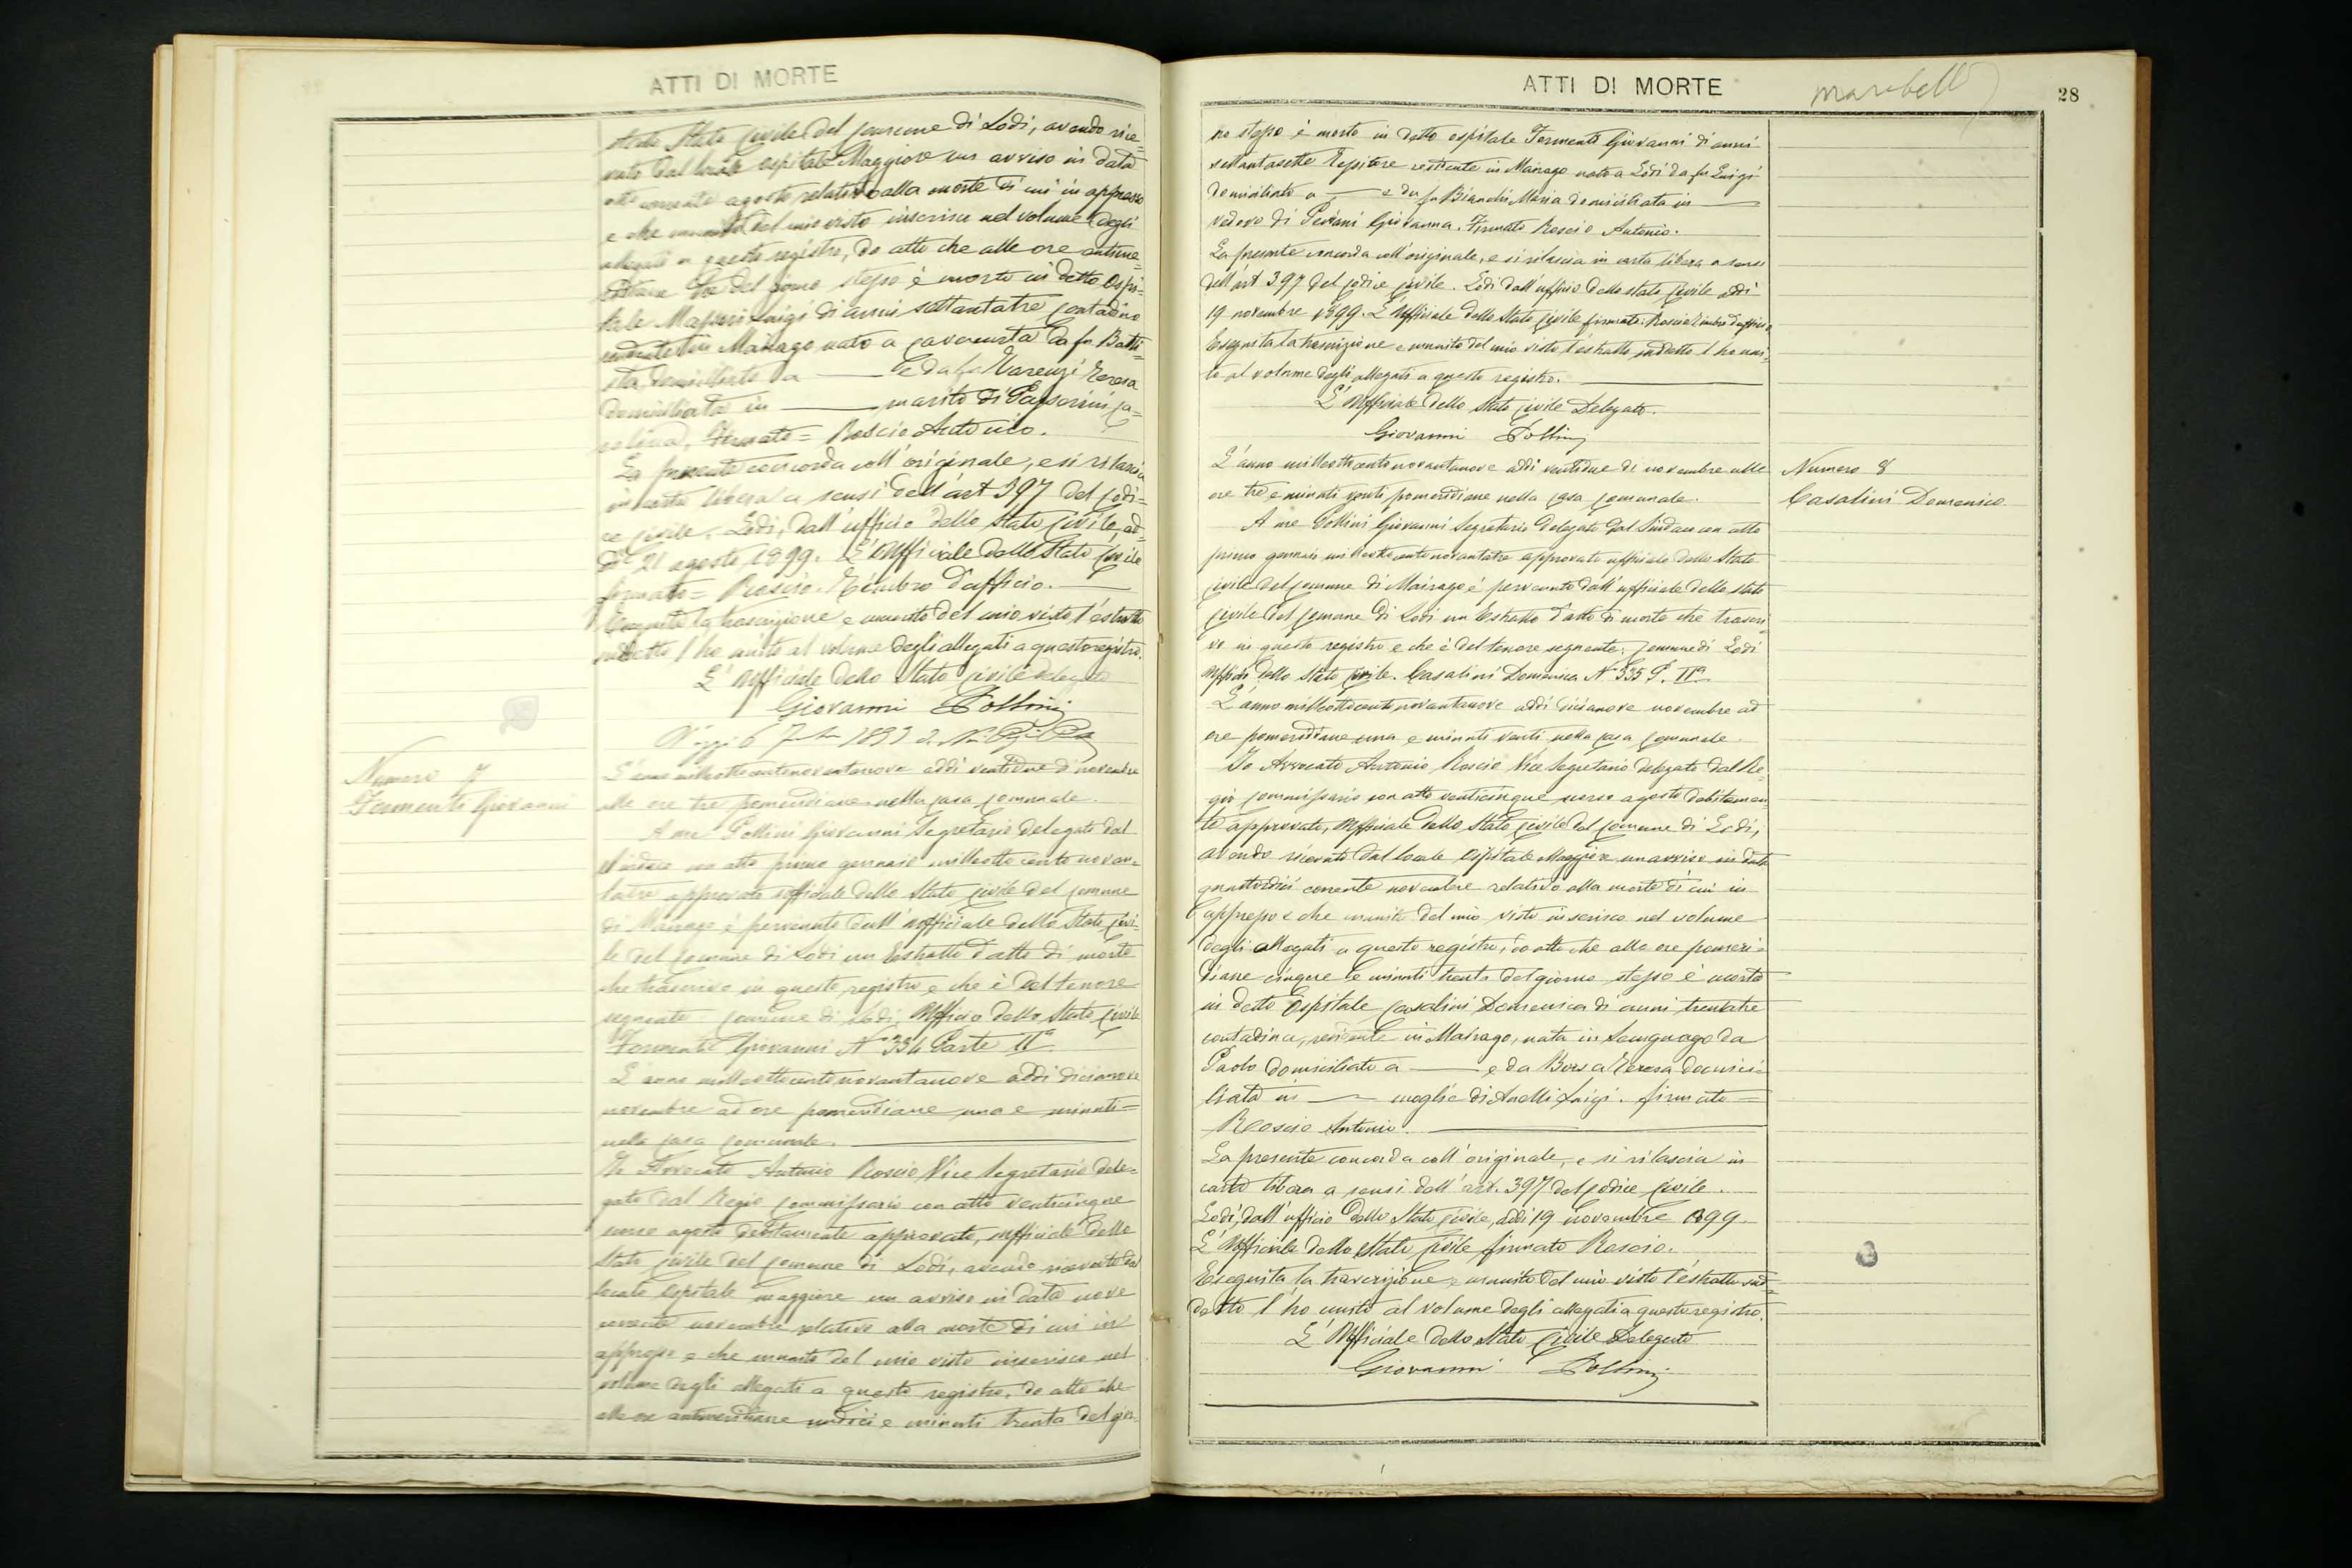 ATTI DI MORTE
dello Stato Civile del Comune di Lodi, avendo rice=
vuto dal locale ospitale Maggiore un avviso in data
otto corrente agosto relativo alla morte di cui in appresso
e che munito del mio visto inserisco nel volume degli
allegati a questo registro, do atto che alle ore antime=
ridiane del giorno stesso è morto in detto Ospi=
tale Luigi di anni settantatre contadino
residente in Mairago nato a Cavacurta da fu Batti=
sta domiciliato a — e da fu Varenzi Teresa
domiciliata in — marito di Passerini Ca=
rolina, Firmato = Roscio Antonio.
La presente concorda coll'originale, e si rilascia
in carta libera a sensi dell'art 397 del Codi=
ce Civile. Lodi, dall'ufficio dello Stato Civile, ad=
dì 21 agosto 1899. L'Ufficiale dello Stato Civile
firmato = Roscio. Timbro d'ufficio. —
Eseguita la trascrizione e munito del mio visto l'estratto
suddetto l'ho unito al volume degli allegati a questo registro.
L'Ufficiale dello Stato Civile delegato
Giovanni Pollini
1899
Numero 7
Formenti Giovanni
L'anno milleottocentonovantanove addì ventidue di novembre
alle ore tre pomeridiane nella Casa Comunale.
A me Pollini Giovanni Segretario delegato dal
Sindaco con atto primo gennaio milleottocentonovan=
tatre approvato ufficiale dello Stato Civile del Comune
di Mairago è pervenuto dall'ufficiale dello Stato Civi=
le del Comune di Lodi un Estratto d'atto di morte
che trascrivo in questo registro e che è del tenore
seguente Comune di Lodi Ufficio dello Stato Civile
Formenti Giovanni N 334 Parte IIa
L'anno milleottocentonovantanove addì dicianove
novembre ad ore pomeridiane una e minuti =
nella Casa Comunale. —
Io Avvocato Antonio Roscio Vice Segretario dele=
gato dal Regio Commissario con atto venticinque
scorso agosto debitamente approvato, ufficiale dello
Stato Civile del Comune di Lodi, avendo ricevuto dal
locale Ospitale maggiore un avviso in data nove
corrente novembre relativo alla morte di cui in
appresso e che munito del mio visto inserisco nel
volume degli allegati a questo registro, do atto che
alle ore antimeridiane undici e minuti trenta del gior=
ATTI DI MORTE
28
no stesso è morto in detto ospitale Formenti Giovanni di anni
settantasette residente in Mairago nato a Lodi da fu Luigi
domiciliato a — e da fu Bianchi Maria domiciliata in —
vedovo di Giovanna. Firmato Roscio Antonio.
La presente concorda coll'originale, e si rilascia in carta libera a sensi
dell'art. 397 del Codice Civile. Lodi dall'ufficio dello stato Civile addì
19 novembre 1899. L'Ufficiale dello Stato Civile firmato: Roscio Timbro d'ufficio
Eseguita la trascrizione e munito del mio visto l'estratto suddetto l'ho uni=
to al volume degli allegati a questo registro. —
L'Ufficiale dello Stato Civile Delegato.
Giovanni Pollini
Numero 8
Casalini Domenica
L'anno milleottocentonovantanove addì ventidue di novembre alle
ore tre e minuti venti pomeridiane nella Casa Comunale.
A me Pollini Giovanni Segretario delegato dal Sindaco con atto
primo gennaio milleottocentonovantatre approvato ufficiale dello Stato
Civile del Comune di Mairago è pervenuto dall'ufficiale dello stato
Civile del Comune di Lodi un Estratto d'atto di morte che trascri=
vo in questo registro e che è del tenore seguente: Comune di Lodi
Ufficio dello Stato Civile. Casalini Domenica N 335 P. IIa
L'anno milleottocentonovantanove addì dicianove novembre ad
ore pomeridiane una e minuti venti nella Casa Comunale.
Io Avvocato Antonio Roscio Vice Segretario delegato dal Re=
gio Commissario con atto venticinque scorso agosto debitamen=
te approvato, Ufficiale dello Stato Civile del Comune di Lodi,
avendo ricevuto dal locale ospitale Maggiore un avviso in data
quattordici corrente novembre relativo alla morte di cui in
appresso e che munito del mio visto inserisco nel volume
degli allegati a questo registro, do atto che alle ore pomeri=
diane cinque e minuti trenta del giorno stesso è morta
in detto Ospitale Casalini Domenica di anni trentatre
contadina, residente in Mairago, nata in da
Paolo domiciliato a — e da Borsa Teresa domici=
liata in — moglie di Anelli Luigi. firmato =
Roscio Antonio. —
La presente concorda coll'originale, e si rilascia in
carta libera a sensi dell'art. 397 del Codice Civile.
Lodi, dall'ufficio dello Stato Civile, addì 19 Novembre 1899.
L'Ufficiale dello Stato Civile firmato Roscio.
Eseguita la trascrizione e munito del mio visto l'estratto sud=
detto l'ho unito al volume degli allegati a questo registro.
L'Ufficiale dello Stato Civile Delegato
Giovanni Pollini